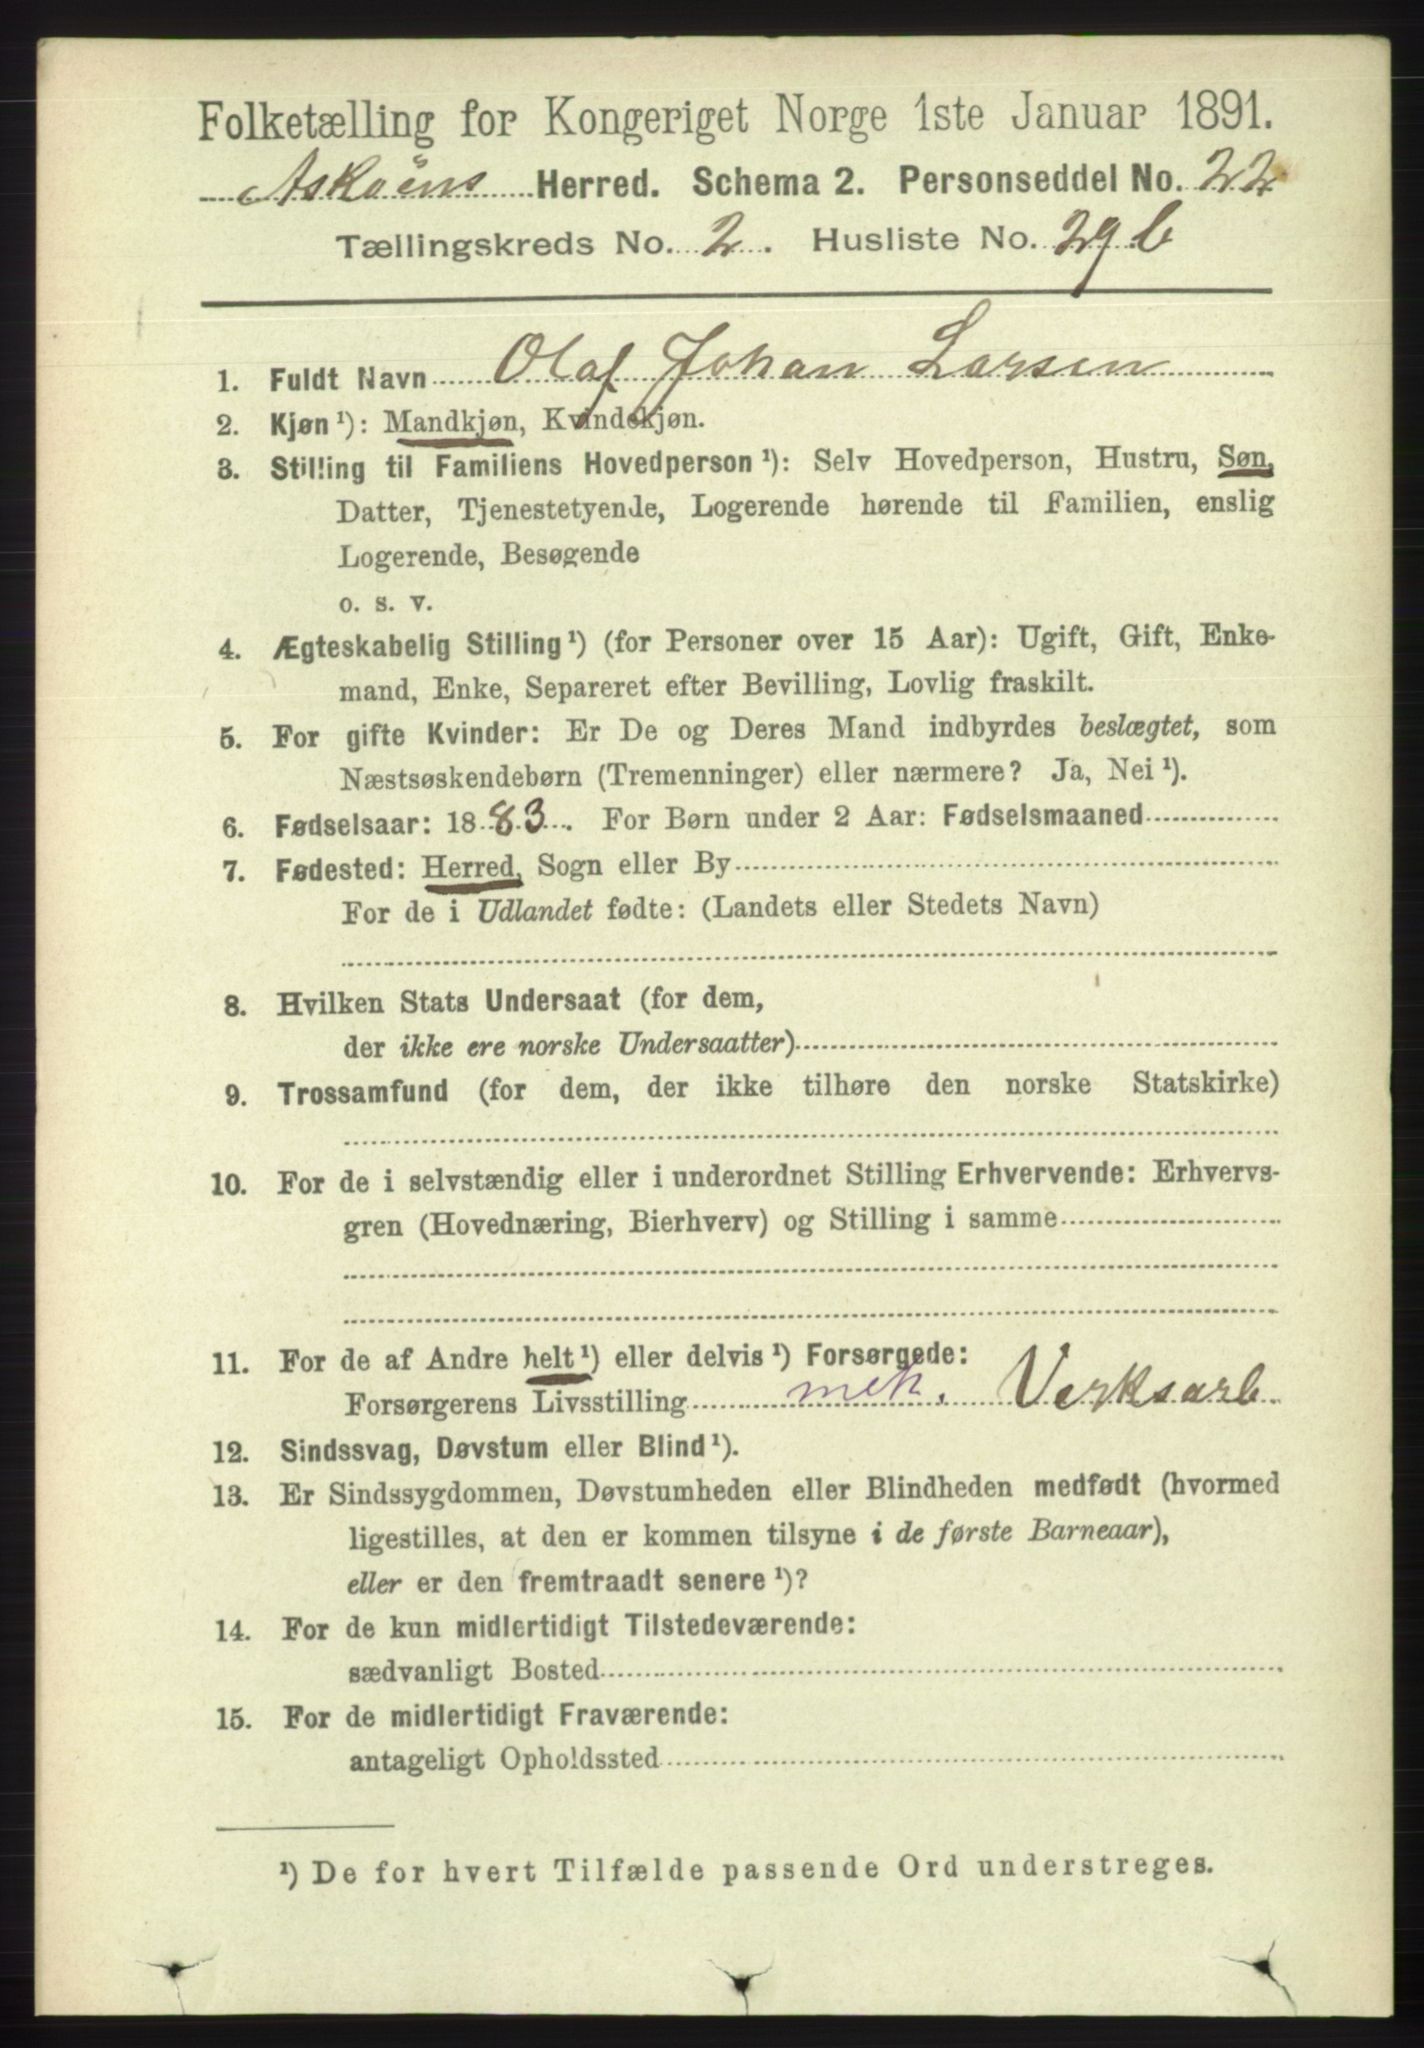 Folketælling for Kongeriget Norge 1ste Januar 1891.
Askøens Herred. Schema 2. Personseddel No. 22
Tællingskreds No. 2. Husliste No. 29 b
1. Fuldt Navn Olaf Johan Larsen
2. Kjøn ¹): Mandkjøn, Kvindekjøn.
3. Stilling til Familiens Hovedperson ¹): Selv Hovedperson, Hustru, Søn,
Datter, Tjenestetyende, Logerende hørende til Familien, enslig
Logerende, Besøgende
o. s. v.
4. Ægteskabelig Stilling ¹) (for Personer over 15 Aar): Ugift, Gift, Enke-
mand, Enke, Separeret efter Bevilling, Lovlig fraskilt.
5. For gifte Kvinder: Er De og Deres Mand indbyrdes beslægtet, som
Næstsøskendebørn (Tremenninger) eller nærmere? Ja, Nei ¹).
6. Fødselsaar: 1883. For Børn under 2 Aar: Fødselsmaaned
7. Fødested: Herred, Sogn eller By
For de i Udlandet fødte: (Landets eller Stedets Navn)
8. Hvilken Stats Undersaat (for dem,
der ikke ere norske Undersaatter)
9. Trossamfund (for dem, der ikke tilhøre den norske Statskirke)
10. For de i selvstændig eller i underordnet Stilling Erhvervende: Erhvervs-
gren (Hovednæring, Bierhverv) og Stilling i samme
11. For de af Andre helt ¹) eller delvis ¹) Forsørgede:
Forsørgerens Livsstilling mek. Verksarb.
12. Sindssvag, Døvstum eller Blind ¹).
13. Er Sindssygdommen, Døvstumheden eller Blindheden medfødt (hvormed
ligestilles, at den er kommen tilsyne i de første Barneaar),
eller er den fremtraadt senere ¹)?
14. For de kun midlertidigt Tilstedeværende:
sædvanligt Bosted
15. For de midlertidigt Fraværende:
antageligt Opholdssted
¹) De for hvert Tilfælde passende Ord understreges.